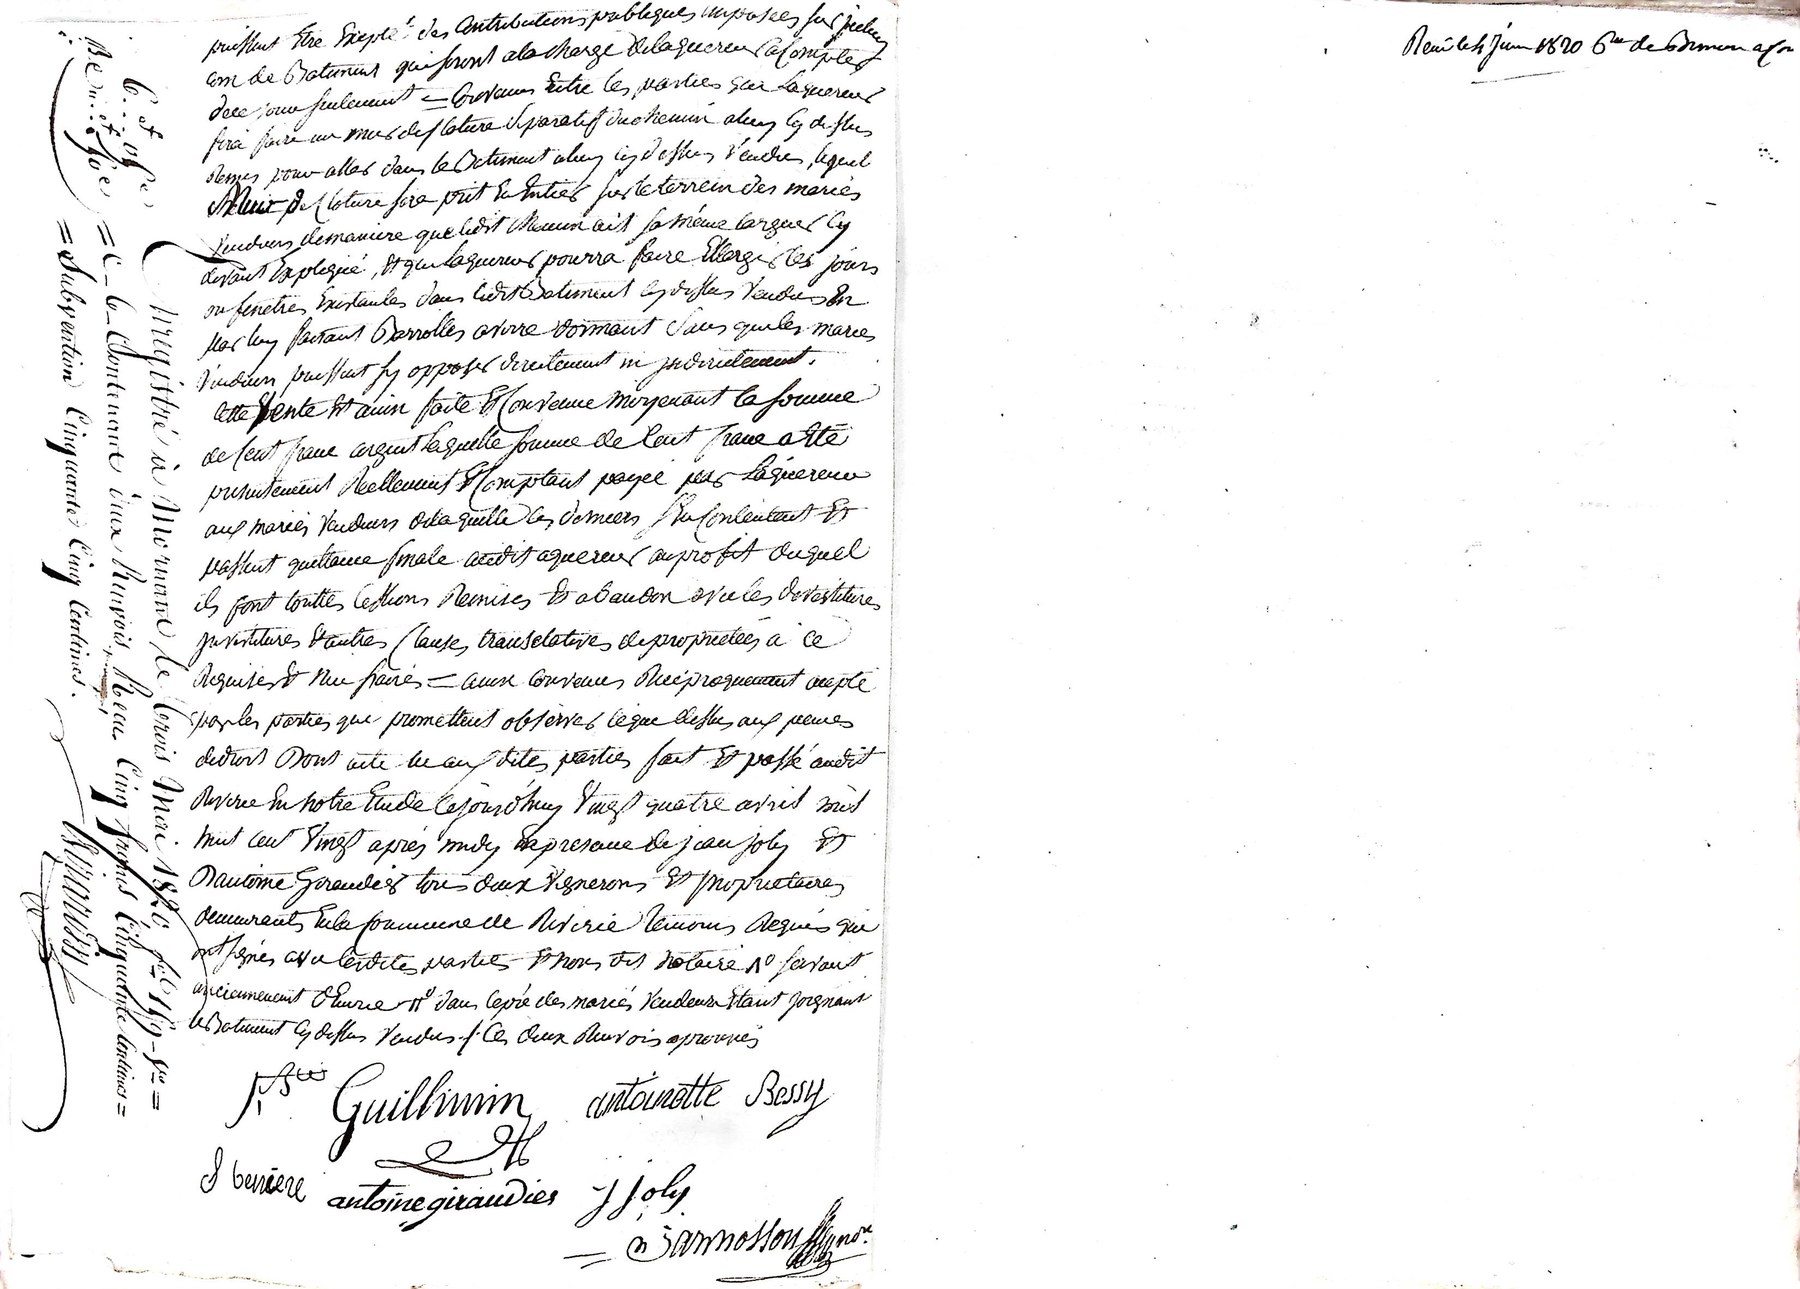 puissent être Exepté des Contributions publiques imposées sur
de Batiment qui seront ala charge delaquereur a Compter
dece jour seulement = Convenus Entre les parties que Laquereur
fera faire un mur de Cloture Separatif du chemin aluy cy dessus
Remis pour aller dans le Batiment aluy cy dessus Vendus, lequel
Mur de Cloture sera prit En Entier sur le terrein des mariés
Vendeurs demaniere que ledit Chemin ait sa même largeur cy
devant Expliqué, Et que laquereur pourra faire Ellargir les jours
ou fenetres Existantes dans ledit Batiment cy dessus Vendus En
par luy faisant Barrolles a verre dormant Sans que les mariés
Vendeurs puissent sy opposer directement ni jndirectement.
Cette Vente Et ainsi faite Et Convenue moyenant la somme
de Cent franc argent laquelle somme de Cent franc a Eté
presentement Réellement Et Comptant payée par Laquereur
aux mariés Vendeurs delaquelle ces derniers s'En Contentent Et
passent quittance finale audit aquereur au profit duquel
ils font touttes Cessions Remises Et abandon avec les devestitures
jnvestitures Et autres Clauses translatives de proprietées a ce
Requises Et = ainsi convenus Reciproquement accepté
par les parties qui promettent observer ceque dessus aux peines
de droit Dont acte lu aux dites parties fait Et passé audit
Riverie En notre Etude Cejourd'huy Vingt quatre avril mil
huit cent Vingt après midy En presence de jean joly Et
D'antoine Giraudier tous deux Vignerons Et proprietaires
demeurants En la Commune de Riverie temoins Requis qui
ont signés avec lesdites parties Et nous dit notaire servant
anciennement dans le pré des mariés Vendeurs Etant joignant
le Batiment cy dessus Vendus Ces deux Renvois aprouvés
Guillimin antoinette Bessy
antoine giraudier j joly
Jarnosson
Enrigistré à Mornant le trois Mai 1820
Contenant deux Renvois, Reçu Cinq francs Cinquante Centimes =
= Subvention Cinquante Cinq Centimes.
1820